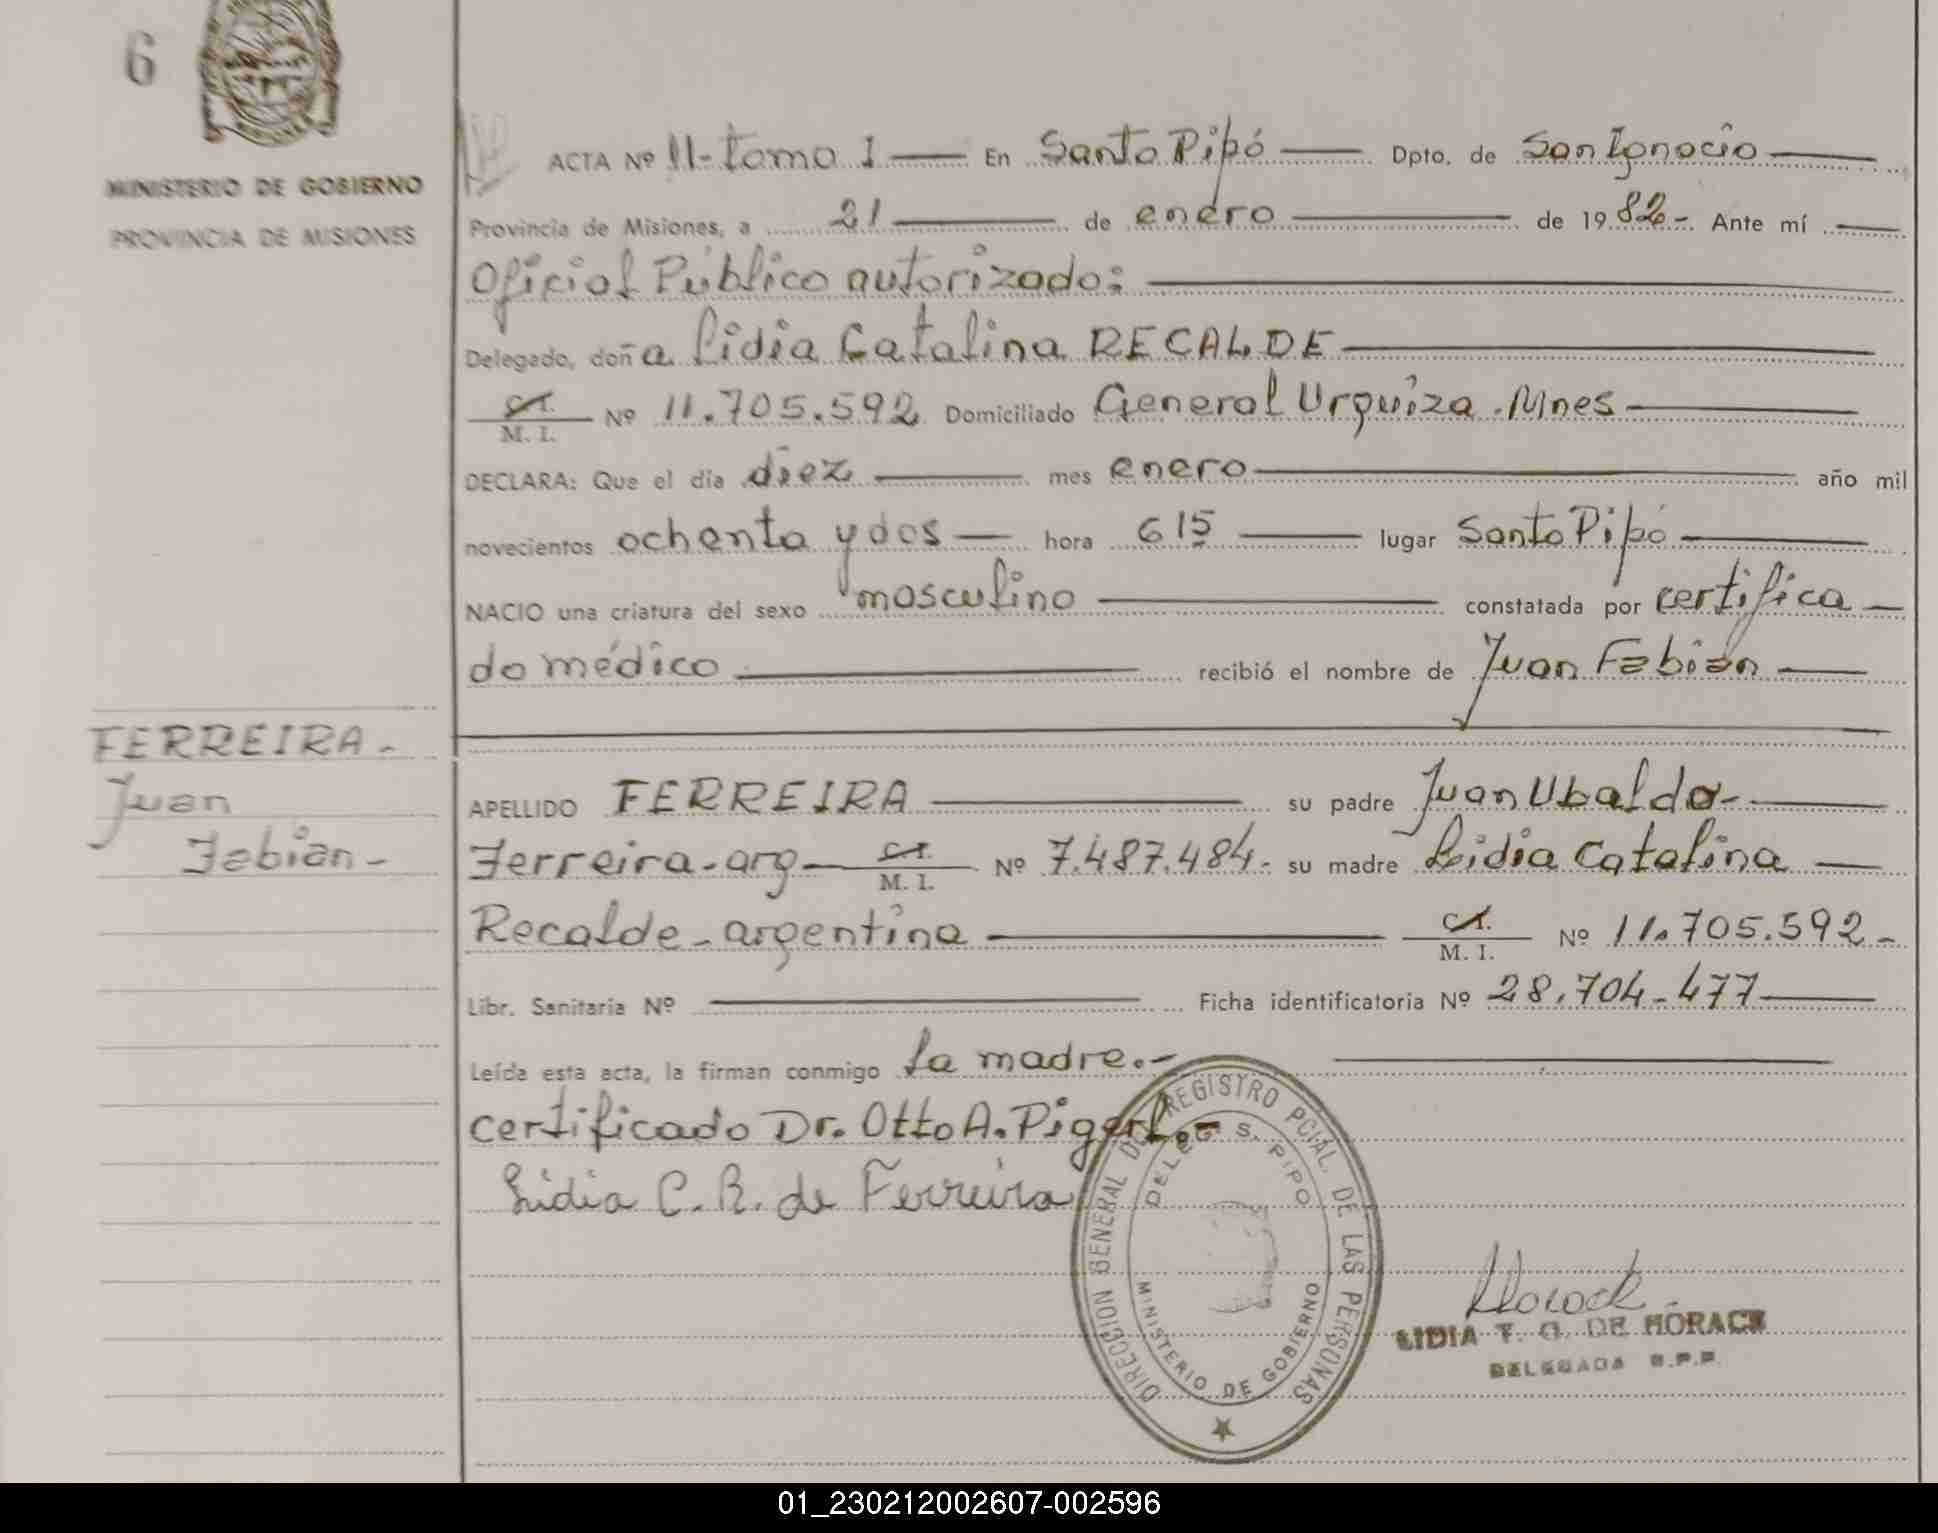 6
MINISTERIO DE GOBIERNO
PROVINCIA DE MISIONES
ACTA Nº 11-tomo I En Santo Pipó Dpto. de San Ignacio
Provincia de Misiones, a 21 de enero de 1982- Ante mí
Oficial Público autorizado:
Delegado, doña Lidia Catalina RECALDE
C.I.
M. I. Nº 11.705.592 Domiciliado General Urquiza. Mnes
DECLARA: Que el día diez mes enero año mil
novecientos ochenta y dos hora 6 15 lugar Santo Pipó
NACIO una criatura del sexo masculino constatada por certifica
do médico recibió el nombre de Juan Fabián
FERREIRA-
Juan
Fabian-
APELLIDO FERREIRA su padre Juan Ubaldo-
Ferreira-arg- C.I.
M. I. Nº 7.487.484- su madre Lidia Catalina
Recalde-argentina C.I.
M. I. Nº 11.705.592-
Libr. Sanitaria Nº Ficha identificatoria Nº 28.704-477
Leída esta acta, la firman conmigo la madre.-
certificado Dr. Otto A. Pigerl.-
Lidia C. R. de Ferreira
DIRECCION GENERAL DE REGISTRO PCIAL. DE LAS PERSONAS
DELEG. S. PIPO
MINISTERIO DE GOBIERNO
Horack
LIDIA T. G. DE HORACK
DELEGADA R.P.P.
01_230212002607-002596